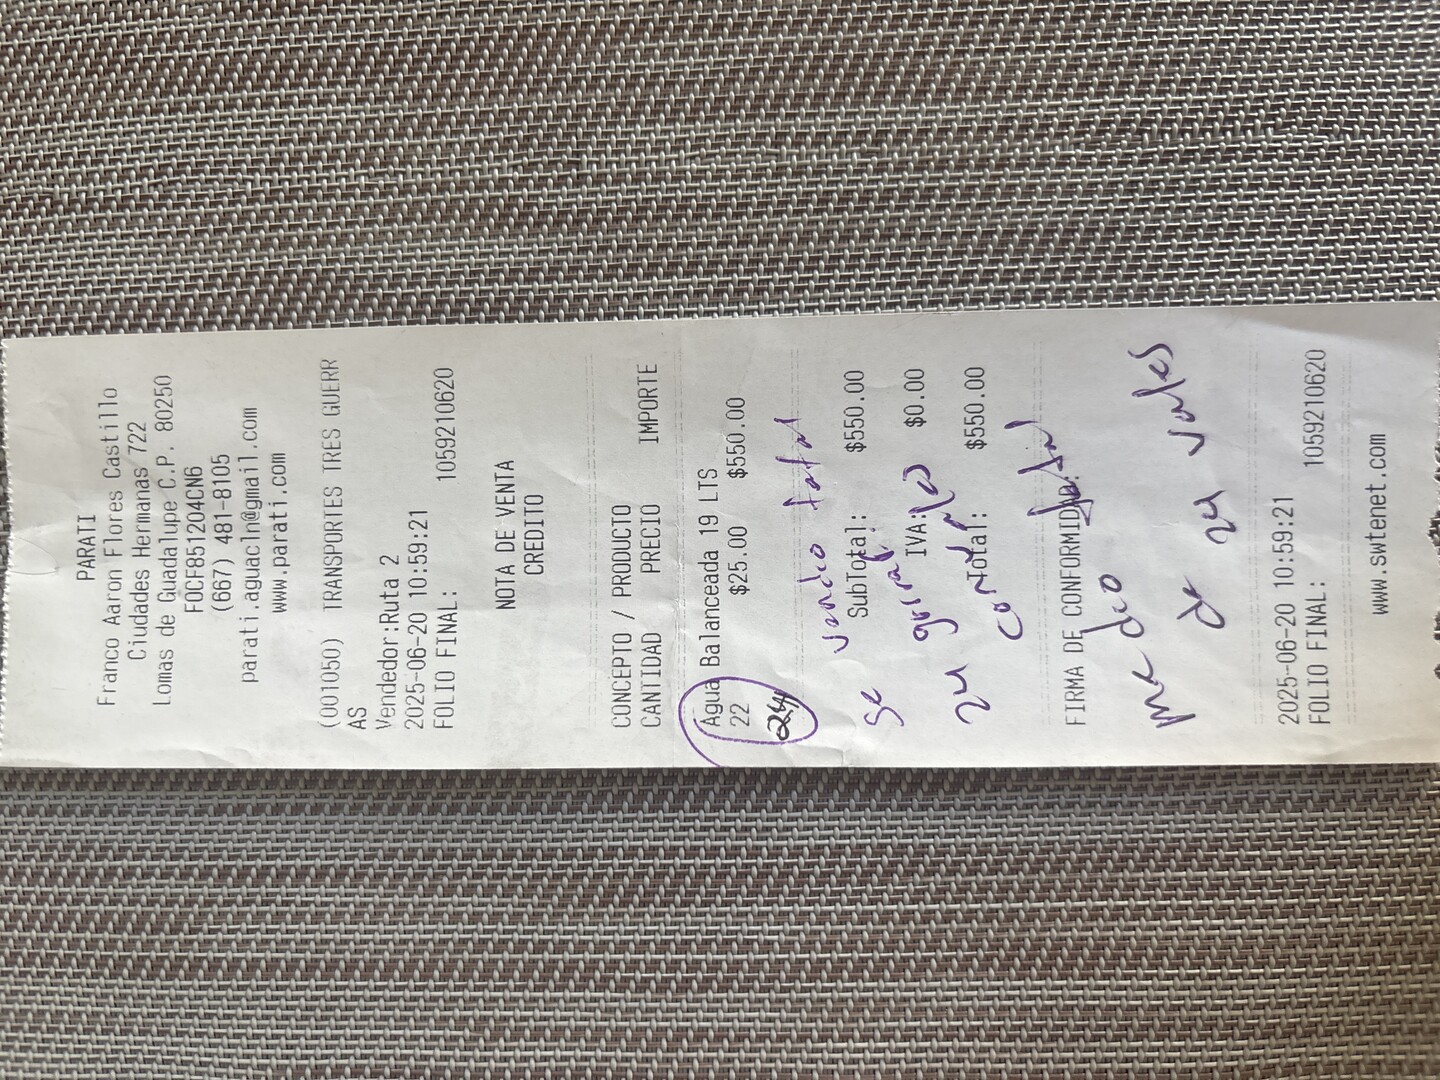 PARATI
Franco Aaron Flores Castillo
Ciudades Hermanas 722
Lomas de Guadalupe C.P. 80250
FOCF851204CN6
(667) 481-8105
parati.aguacln@gmail.com
www.parati.com
(001050) TRANSPORTES TRES GUERR
AS
Vendedor:Ruta 2
2025-06-20 10:59:21
FOLIO FINAL: 1059210620
NOTA DE VENTA
CREDITO
CONCEPTO / PRODUCTO
CANTIDAD PRECIO IMPORTE
Agua Balanceada 19 LTS
22 $25.00 $550.00
24
se vendio total
SubTotal: $550.00
24
IVA: $0.00
Total: $550.00
FIRMA DE CONFORMIDAD:
me dio
de 24 vales
2025-06-20 10:59:21
FOLIO FINAL: 1059210620
www.swtenet.com